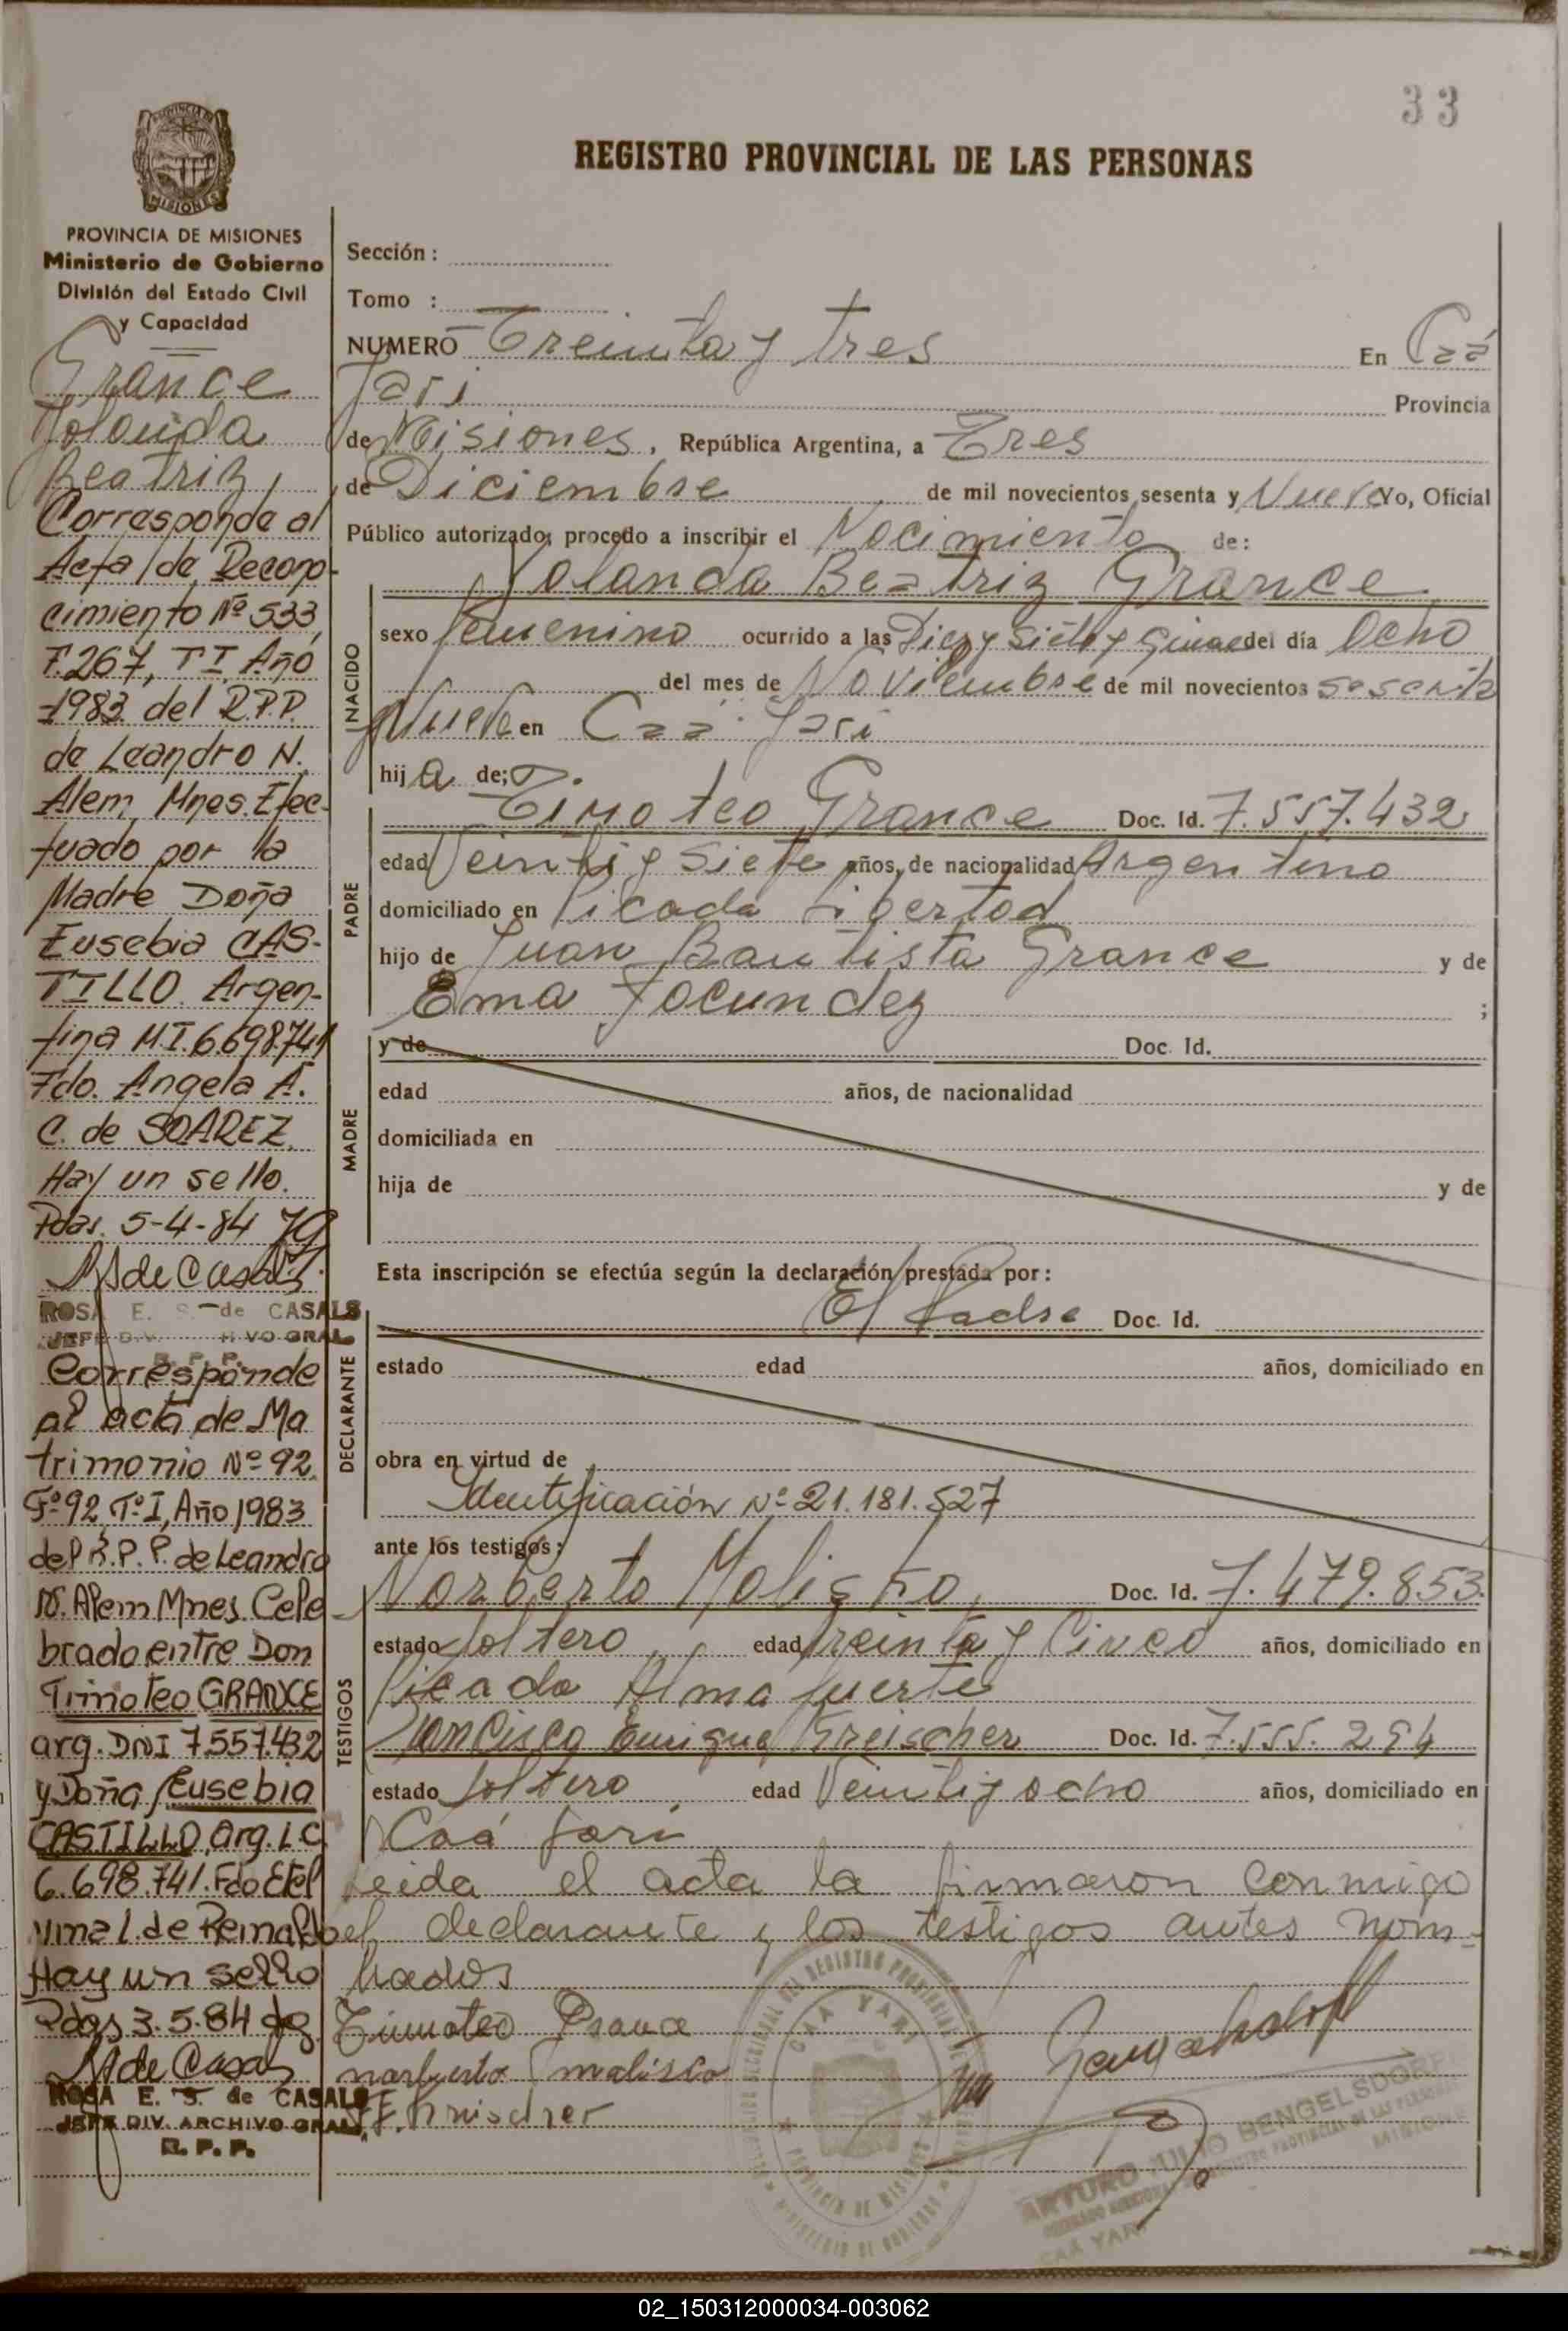 33
REGISTRO PROVINCIAL DE LAS PERSONAS
PROVINCIA DE MISIONES
Ministerio de Gobierno
División del Estado Civil
y Capacidad
Grance
Yolanda
Beatriz,
Corresponde al
Acta de Recono-
cimiento Nº 533,
F.267, T I, Año
1983 del R.P.P.
de Leandro N.
Alem, Mnes. Efec-
tuado por la
Madre Doña
Eusebia CAS-
TILLO. Argen-
tina M.I. 6.698.741
Fdo. Angela A.
C. de SOAREZ.
Hay un sello.
Pdas. 5-4-84
ROSA E. S. de CASALS
JEFE DIV. ARCHIVO GRAL.
R. P. P.
Corresponde
al acta de Ma
trimonio Nº 92.
Fº 92 Tº I, Año 1983
del R.P.P. de Leandro
N. Alem Mnes. Cele
brado entre Don
Timoteo GRANCE
arg. DNI 7557.432
y Doña Eusebia
CASTILLO, arg. L.C
6.698.741. Fdo Etel
vina L. de Reinaldo
Hay un sello
Pdas 3.5.84
ROSA E. S. de CASALS
JEFE DIV. ARCHIVO GRAL.
R. P. P.
Sección :
Tomo :
NUMERO Treinta y tres En Caá
Yari Provincia
de Misiones, República Argentina, a Tres
de Diciembre de mil novecientos sesenta y Nueve Yo, Oficial
Público autorizado, procedo a inscribir el Nacimiento de:
Yolanda Beatriz Grance
NACIDO
sexo femenino ocurrido a las Diez y Siete y Quince del día Ocho
del mes de Noviembre de mil novecientos sesenta
y Nueve en Caá Yari
hija de:
PADRE
Timoteo Grance Doc. Id. 7.557.432
edad Veinti y Siete años, de nacionalidad Argentino
domiciliado en Picada Libertad
hijo de Juan Bautista Grance y de
Ema Focundez ;
MADRE
y de Doc. Id.
edad años, de nacionalidad
domiciliada en
hija de y de
Esta inscripción se efectúa según la declaración prestada por:
El Padre Doc. Id.
DECLARANTE
estado edad años, domiciliado en
obra en virtud de
Identificación Nº 21.181.527
ante los testigos:
TESTIGOS
Norberto Malisño, Doc. Id. 7.479.853.
estado Soltero edad treinta y Cinco años, domiciliado en
Picada Alma fuerte
Francisco Enrique Kreischer Doc. Id. 7.555.254
estado Soltero edad Veinti y ocho años, domiciliado en
Caá Yari
Leida el acta la firmaron conmigo
el declarante y los testigos antes nom-
brados
Timoteo Grance
CAA YARI
ARTURO JULIO BENGELSDORFF
CAA YARI
02_150312000034-003062